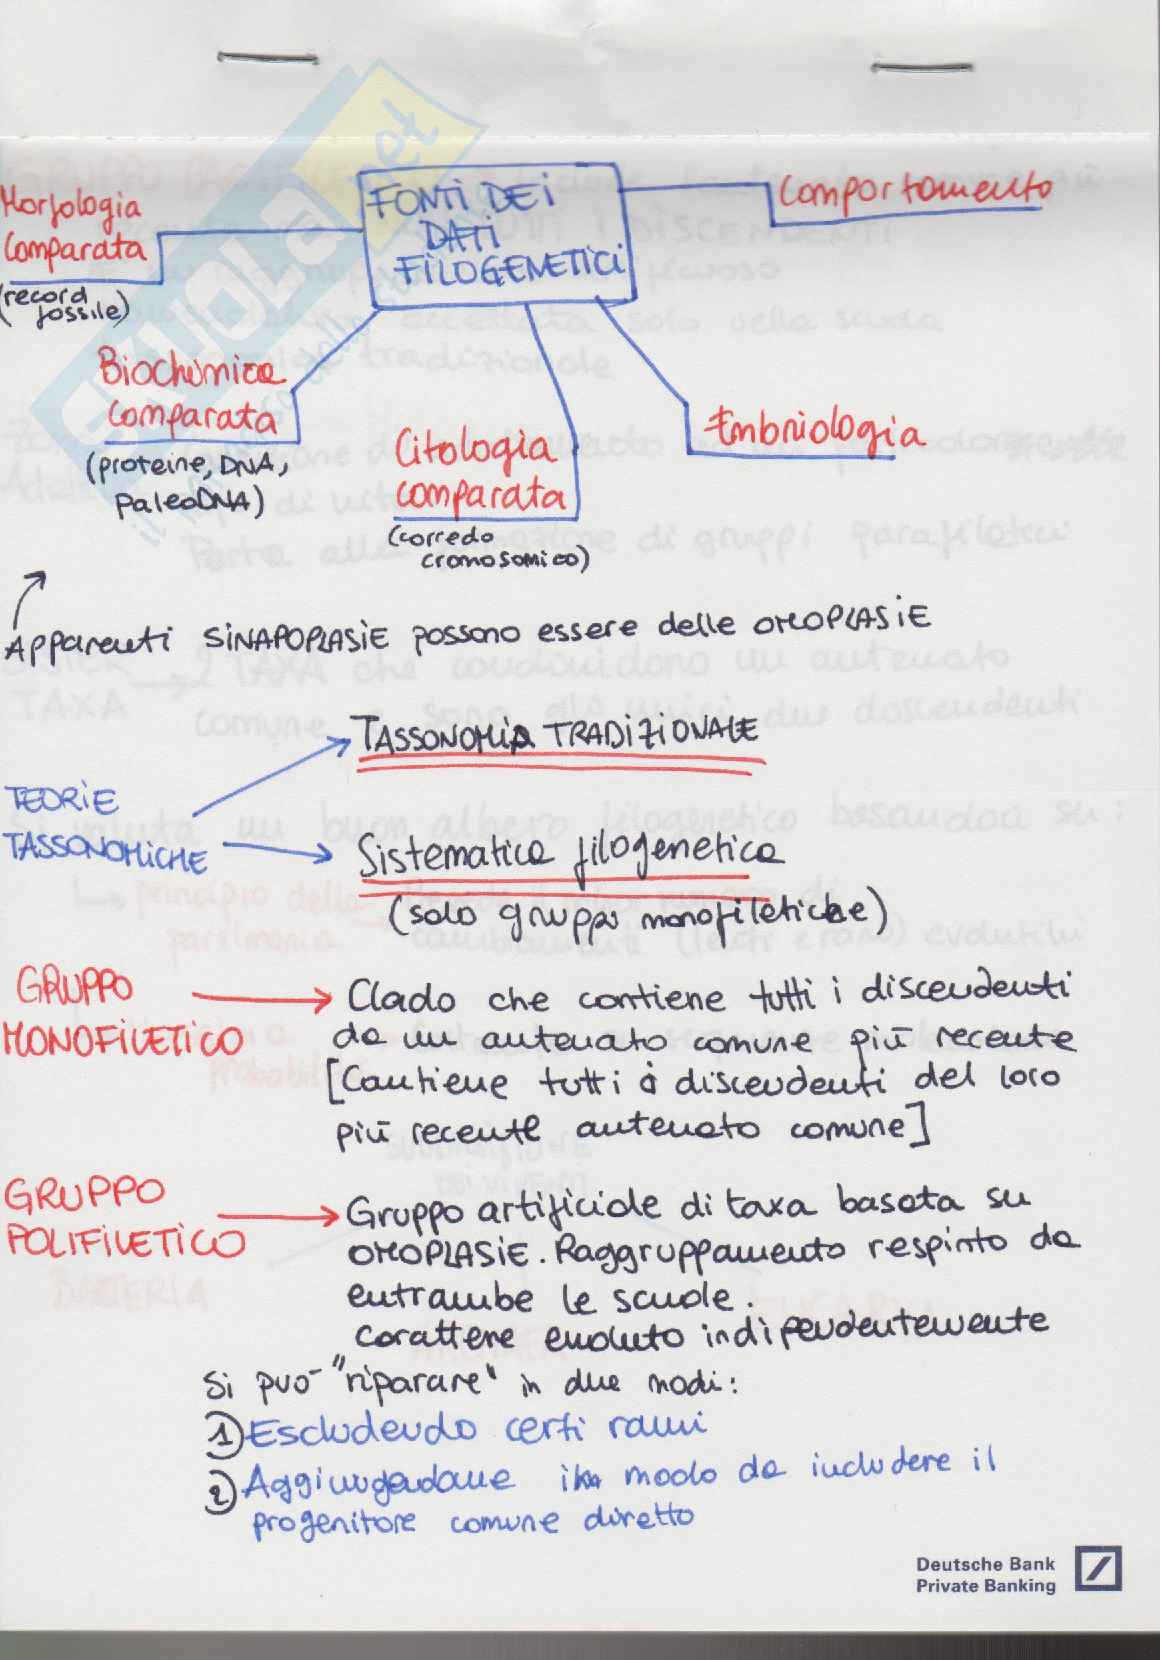 FONTI DEI
DATI
FILOGENETICI
Morfologia
comparata
(record
fossile)
Comportamento
Biochimica
comparata
(proteine, DNA,
paleoDNA)
Citologia
comparata
(corredo
cromosomico)
Embriologia
Apparenti SINAPOPLASIE possono essere delle OMOPLASIE
TEORIE
TASSONOMICHE
TASSONOMIA TRADIZIONALE
Sistematica filogenetica
(solo gruppi monofiletiche)
GRUPPO
MONOFILETICO
Clado che contiene tutti i discendenti
da un antenato comune più recente
[Contiene tutti i discendenti del loro
più recente antenato comune]
GRUPPO
POLIFILETICO
Gruppo artificiale di taxa basata su
OMOPLASIE. Raggruppamento respinto da
entrambe le scuole.
carattere evoluto indipendentemente
Si può "riparare" in due modi:
1) Escludendo certi rami
2) Aggiungendone in modo da includere il
progenitore comune diretto
Deutsche Bank
Private Banking